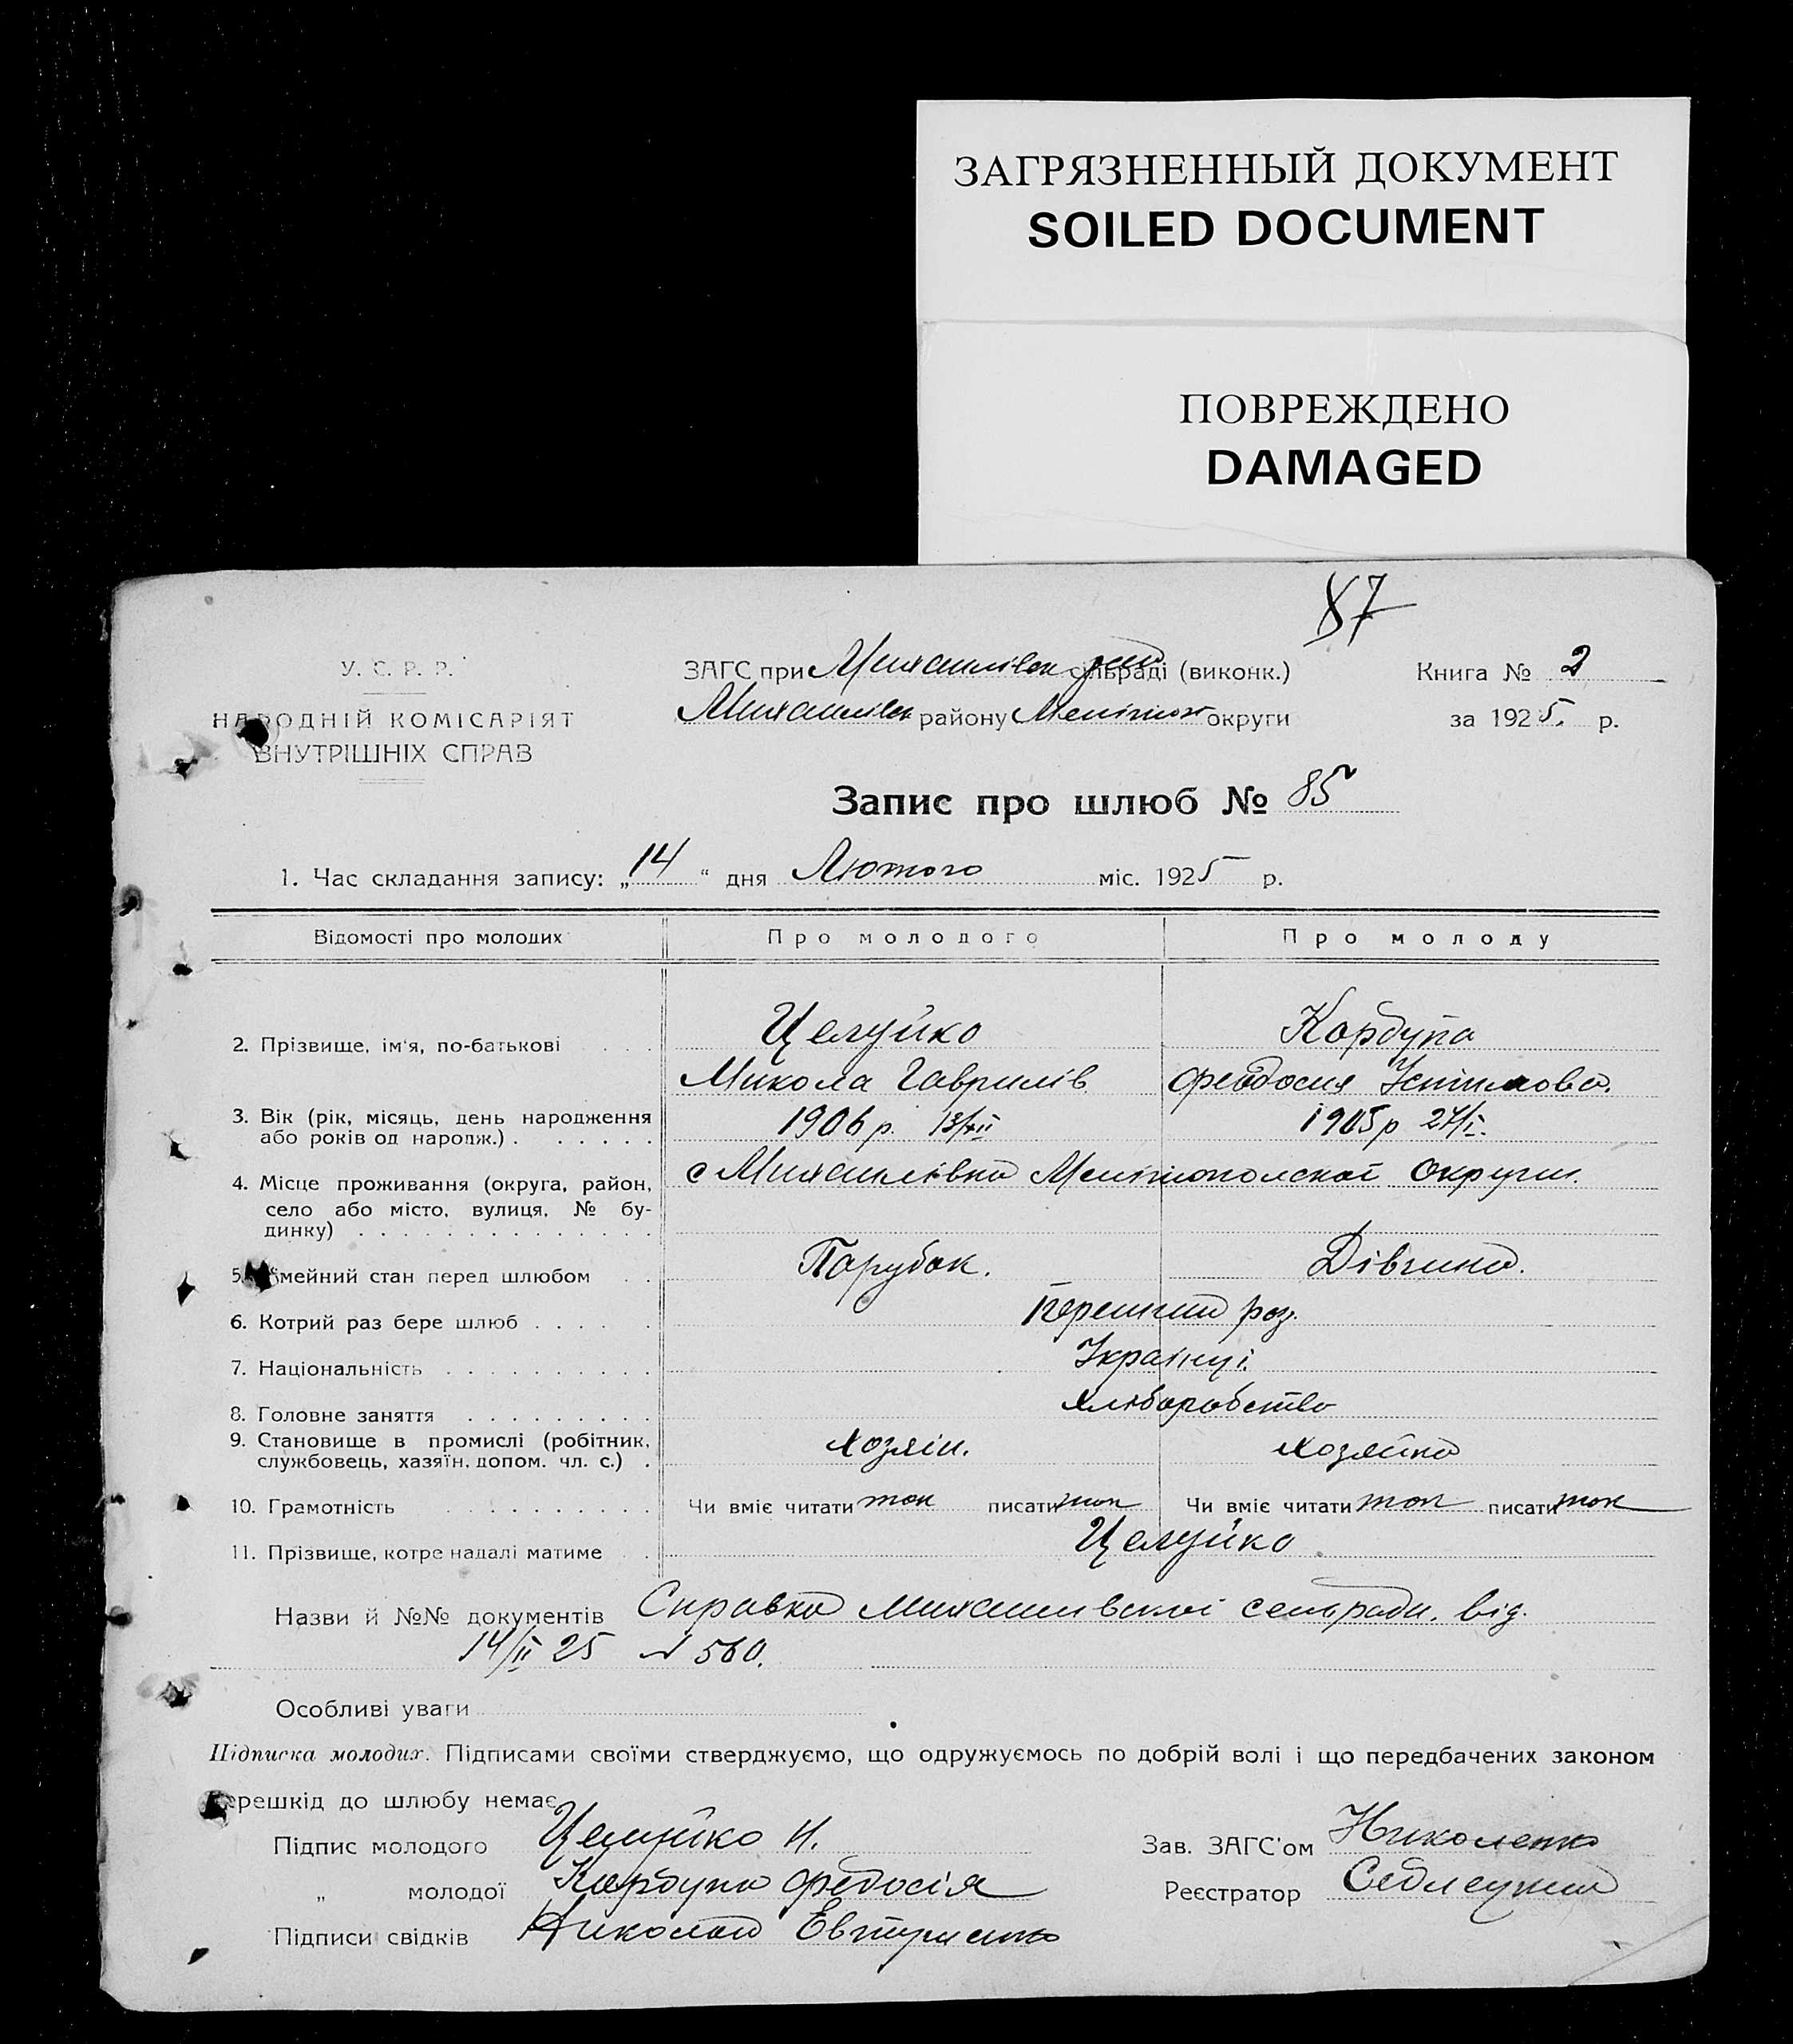 ЗАГРЯЗНЕННЫЙ ДОКУМЕНТ
SOILED DOCUMENT
ПОВРЕЖДЕНО
DAMAGED
87
У. С. Р. Р.
НАРОДНІЙ КОМІСАРІЯТ
ВНУТРІШНІХ СПРАВ
ЗАГС при Михайлівск сільраді (виконк.)
Михайлівск району Меліт округи
Книга № 2
за 1925 р.
Запис про шлюб № 85
1. Час складання запису: „14“ дня Лютого міс. 1925 р.
Відомості про молодих Про молодого Про молоду
2. Прізвище, ім'я, по-батькові . . . Целуйко Кордупа
Микола Гаврилів Феодосия
3. Вік (рік, місяць, день народження 1906 р. 1905 р 24/I.
або років од народж.) . . . . . .
4. Місце проживання (округа, район, с Михайлівка Мелітопольскої Округи.
село або місто, вулиця, № бу-
динку) . . . . . . . . . . . . . .
5. мейний стан перед шлюбом . . Парубок. Дівчина.
6. Котрий раз бере шлюб . . . . . Перший раз.
7. Національність . . . . . . . . . . Українці.
8. Головне заняття . . . . . . . . . Хліборобство
9. Становище в промислі (робітник, хозяін. хозяйка
службовець, хазяїн, допом. чл. с.) .
10. Грамотність . . . . . . . . . Чи вміє читати так писати так Чи вміє читати так писати так
11. Прізвище, котре надалі матиме . . Целуйко
Назви й №№ документів Справка Михайлівскої сельради. від.
14/II 25 № 560.
Особливі уваги
Підписка молодих. Підписами своїми стверджуємо, що одружуємось по добрій волі і що передбачених законом
ерешкід до шлюбу немає
Підпис молодого Целуйко Н.
„ молодої Кордупа Федосія
Підписи свідків Николай
Зав. ЗАГС'ом Николенко
Реєстратор